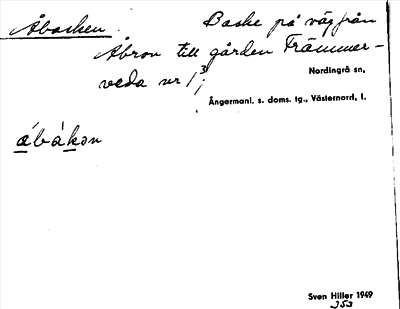 Åbacken. Backe på väg från
Åbron till gården Främmer-
veda nr 1³;
Nordingrå sn,
Ångermanl. s. doms. tg., Västernorrl. l.
ábàkən
Sven Hiller 1949
253